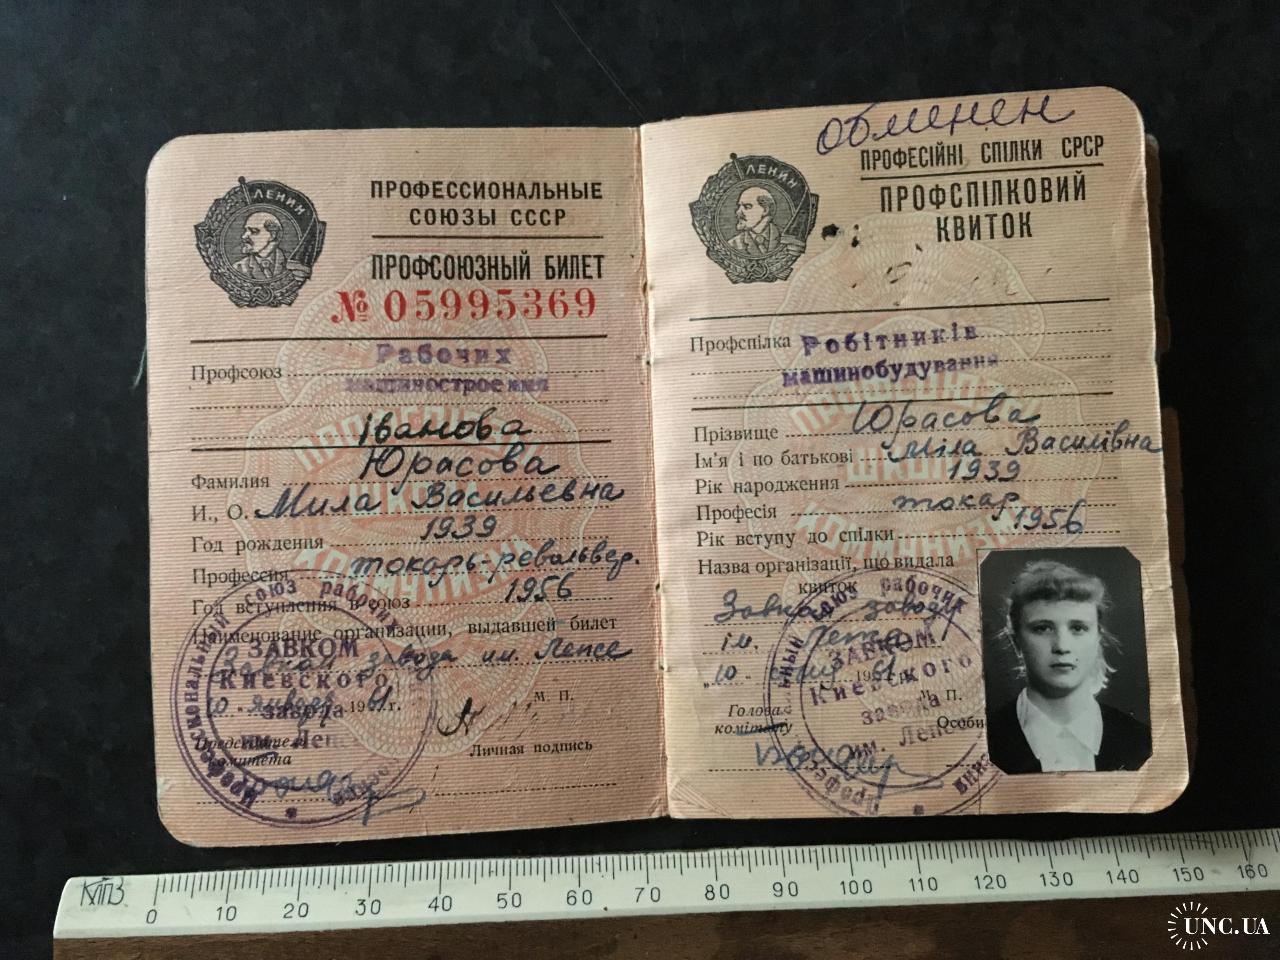 ЛЕНИН
ПРОФЕССИОНАЛЬНЫЕ
СОЮЗЫ СССР
ПРОФСОЮЗНЫЙ БИЛЕТ
№ 05995369
Профсоюз Рабочих
машиностроения
Іванова
Фамилия Юрасова
И., О. Мила Васильевна
Год рождения 1939
Профессия токарь-револьвер.
Год вступления в союз 1956
Наименование организации, выдавшей билет
Завком завода им. Лепсе
10 января 1961 г.
М. П.
Председатель
комитета
Личная подпись
Профессиональный союз рабочих
ЗАВКОМ
Киевского
завода
им. Лепсе
Обменен
ЛЕНИН
ПРОФЕСІЙНІ СПІЛКИ СРСР
ПРОФСПІЛКОВИЙ
КВИТОК
Профспілка Робітників
машинобудування
Прізвище Юрасова
Ім'я і по батькові Міла Василівна
Рік народження 1939
Професія токар
Рік вступу до спілки 1956
Назва організації, що видала
квиток
Завком заводу
ім. Лепсе
"10" 1961 р.
М. П.
Голова
комітету
Особи
союз рабочих
ЗАВКОМ
Киевского
завода
им. Лепсе
ПРОФСПІЛКИ
ШКОЛА
КОМУНІЗМУ
0 10 20 30 40 50 60 70 80 90 100 110 120 130 140 150 160
UNC.UA